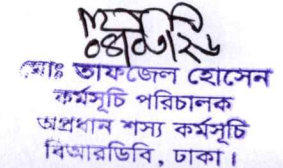 মোঃ তাফজেল হোসেন
কর্মসূচি পরিচালক
অপ্রধান শস্য কর্মসূচি
বিআরডিবি, ঢাকা।